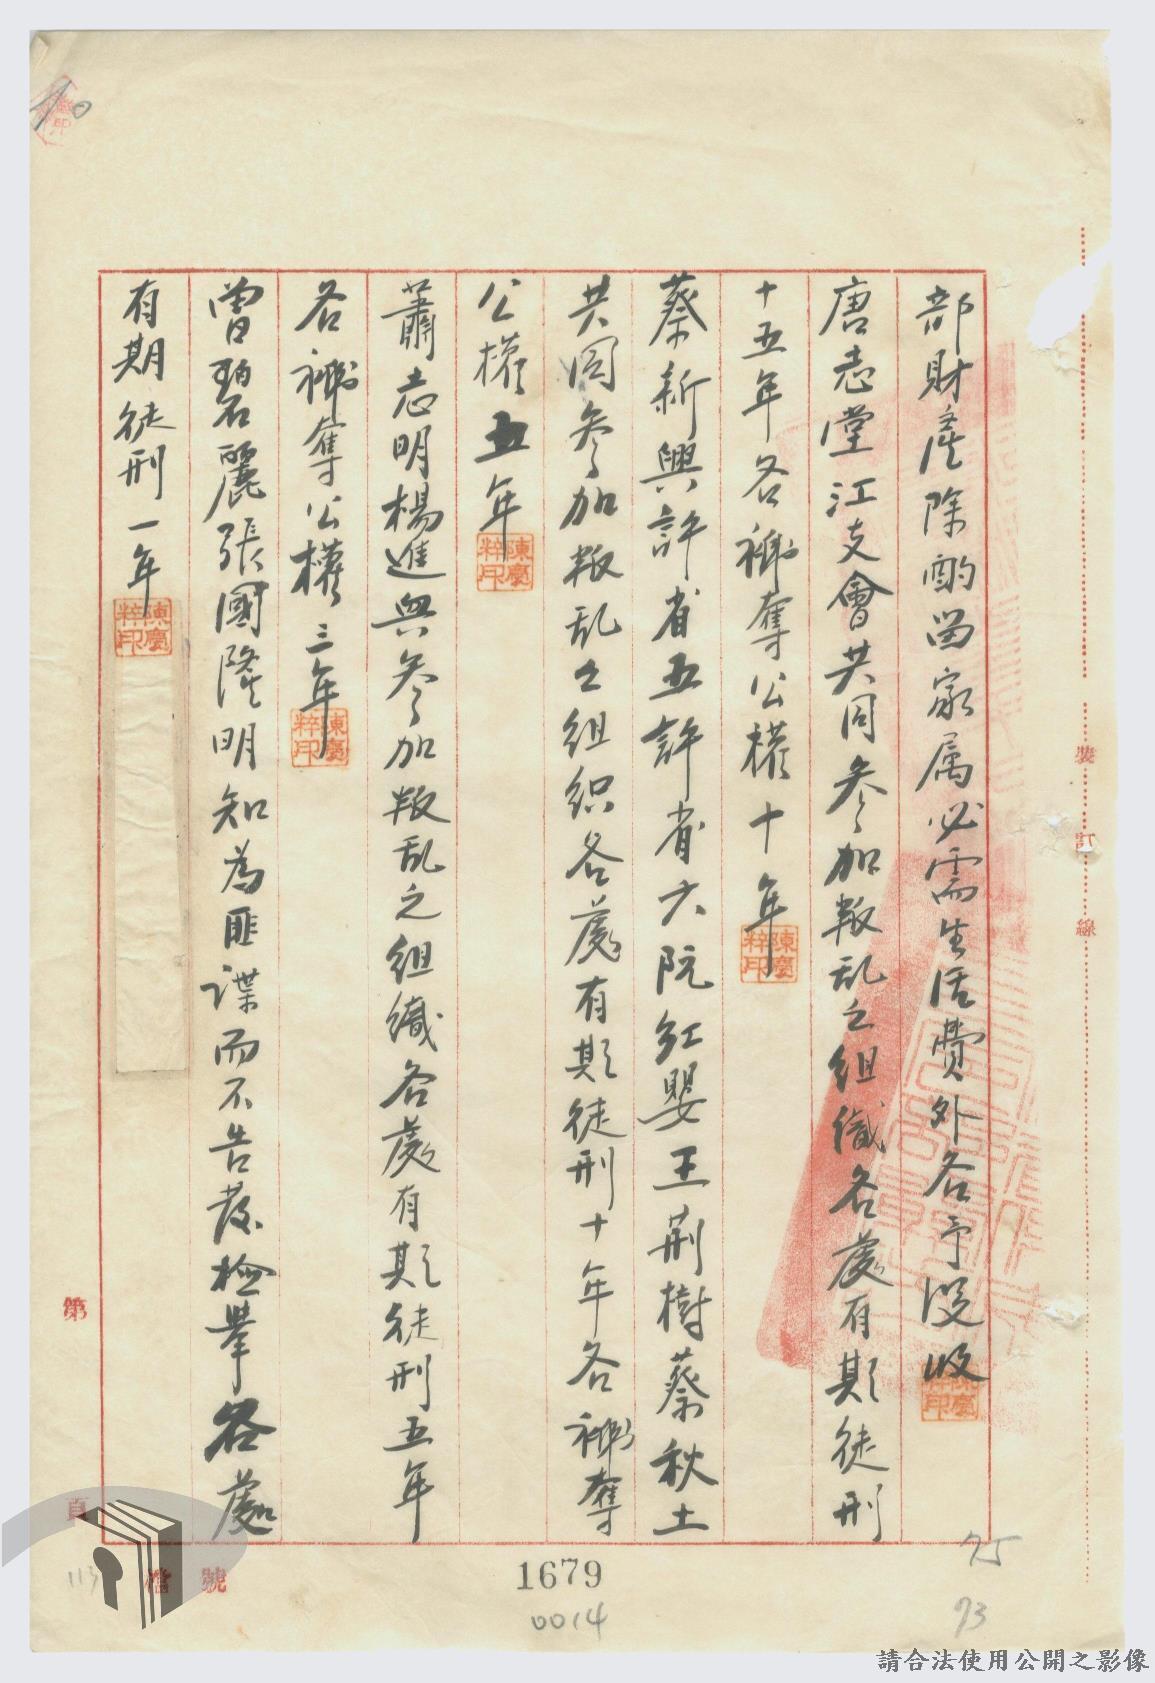 部財產除酌留家属必需生活費外各予沒收
唐志堂江支會共同參加叛乱之組織各處有期徒刑
十五年各褫奪公權十年
蔡新興許省五許省六阮紅嬰王荊樹蔡秋土
共同參加叛乱之组织各處有期徒刑十年各褫奪
公權五年
蕭志明楊進興參加叛乱之组織各處有期徒刑五年
各褫奪公權三年
曾碧麗張國隆明知為匪諜而不告發檢舉各處
有期徒刑一年
陳慶粹印
陳慶粹印
陳慶粹印
陳慶粹印
陳慶粹印
裝訂線
第
頁
檔號
113
1679
0014
75
73
請合法使用公開之影像